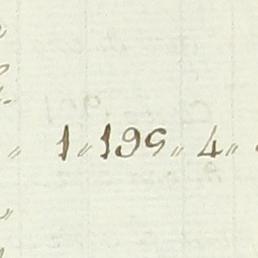 〃 1〃199〃4〃